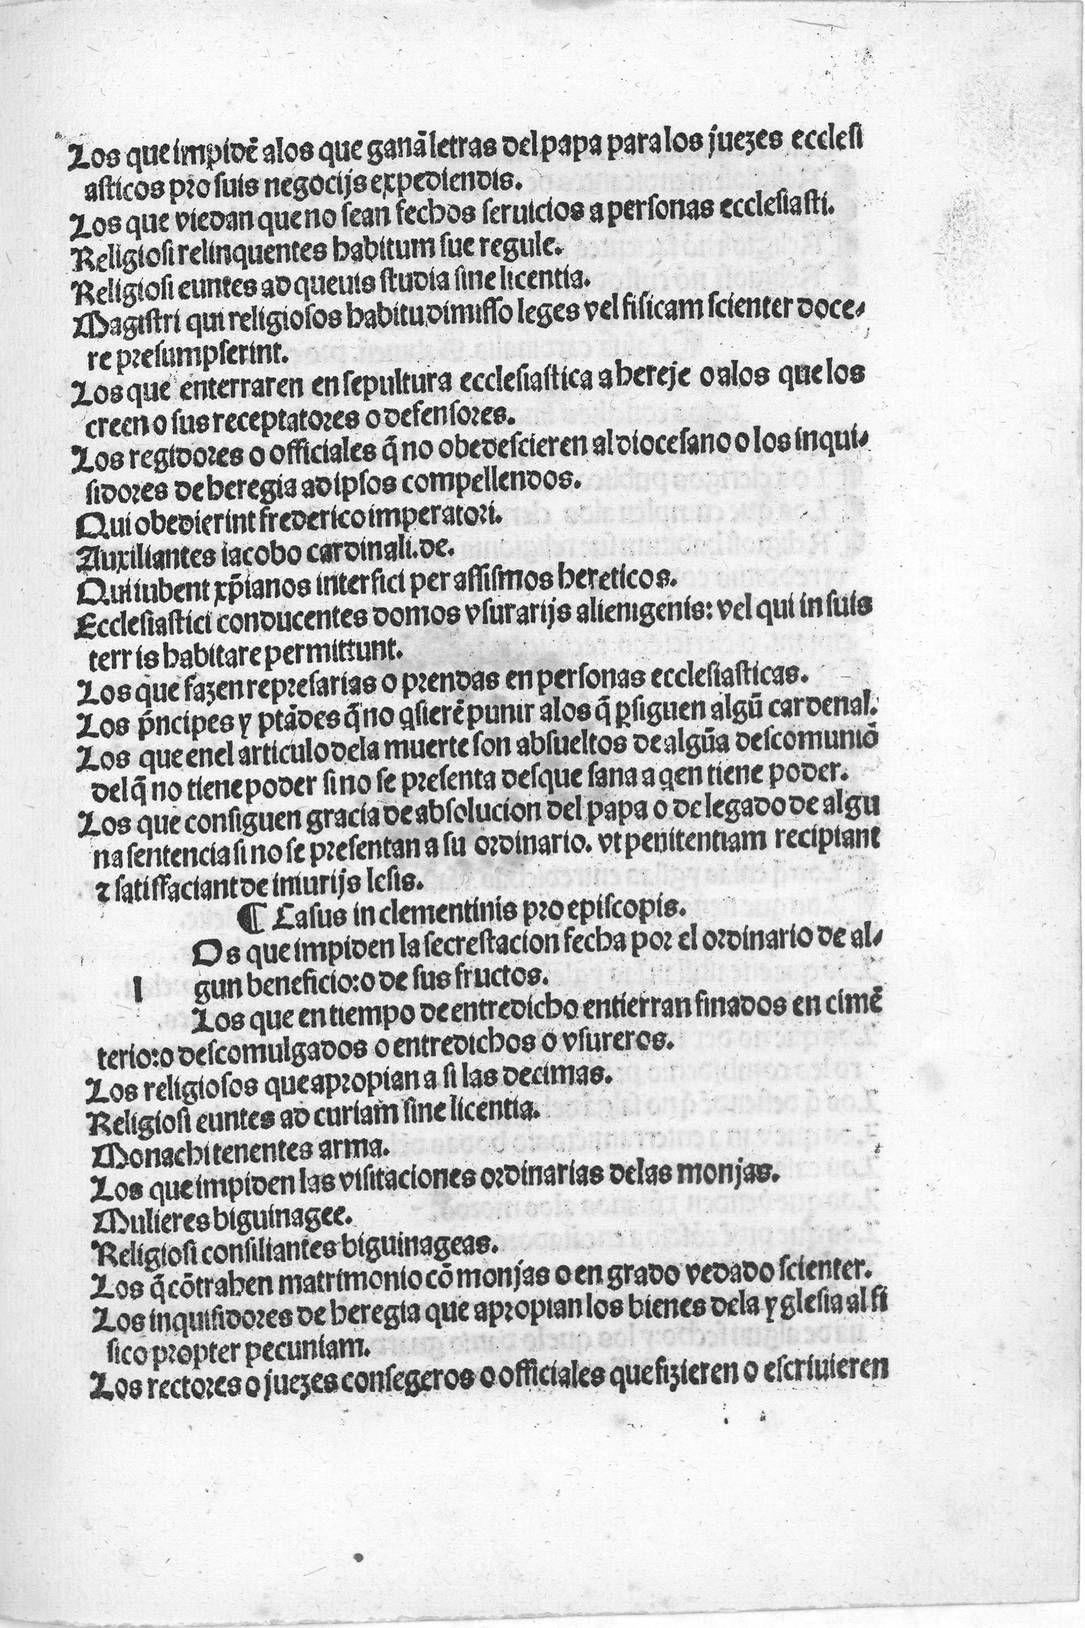 Los que impidē alos que ganā letras del papa para los juezes ecclesi
asticos pro suis negocijs expediendis.
Los que viedan que no sean fechos seruicios a personas ecclesiasti.
Religiosi relinquentes habitum sue regule.
Religiosi euntes ad queuis studia sine licentia.
Magistri qui religiosos habitu dimisso leges vel fisicam scienter doce-
re presumpserint.
Los que enterraren en sepultura ecclesiastica a hereje o alos que los
creen o sus receptatores o defensores.
Los regidores o officiales q̄ no obedescieren al diocesano o los inqui-
sidores de heregia ad ipsos compellendos.
Qui obedierint frederico imperatori.
Auxiliantes iacobo cardinali.de.
Qui iubent xp̄ianos interfici per assismos hereticos.
Ecclesiastici conducentes domos vsurarijs alienigenis: vel qui in suis
terris habitare permittunt.
Los que fazen represarias o prendas en personas ecclesiasticas.
Los p̄ncipes y ptādes q̄ no q̇sierē punir alos q̄ ꝑsiguen algū cardenal.
Los que enel articulo dela muerte son absueltos de algūa descomuniō
del q̄ no tiene poder si no se presenta desque sana a qen tiene poder.
Los que consiguen gracia de absolucion del papa o de legado de algu
na sentencia si no se presentan a su ordinario. vt penitentiam recipiant
⁊ satisfaciant de iniurijs lesis.
¶ Casus in clementinis pro episcopis.
l Os que impiden la secrestacion fecha por el ordinario de al-
gun beneficio:o de sus fructos.
Los que en tiempo de entredicho entierran finados en cimē
terio:o descomulgados o entredichos o vsureros.
Los religiosos que apropian a si las decimas.
Religiosi euntes ad curiam sine licentia.
Monachi tenentes arma.
Los que impiden las visitaciones ordinarias delas monjas.
Mulieres biguinagee.
Religiosi consiliantes biguinageas.
Los q̄ cōtrahen matrimonio cō monjas o en grado vedado scienter.
Los inquisidores de heregia que apropian los bienes dela yglesia al fi
sico propter pecuniam.
Los rectores o juezes consegeros o officiales que fizieren o escriuieren